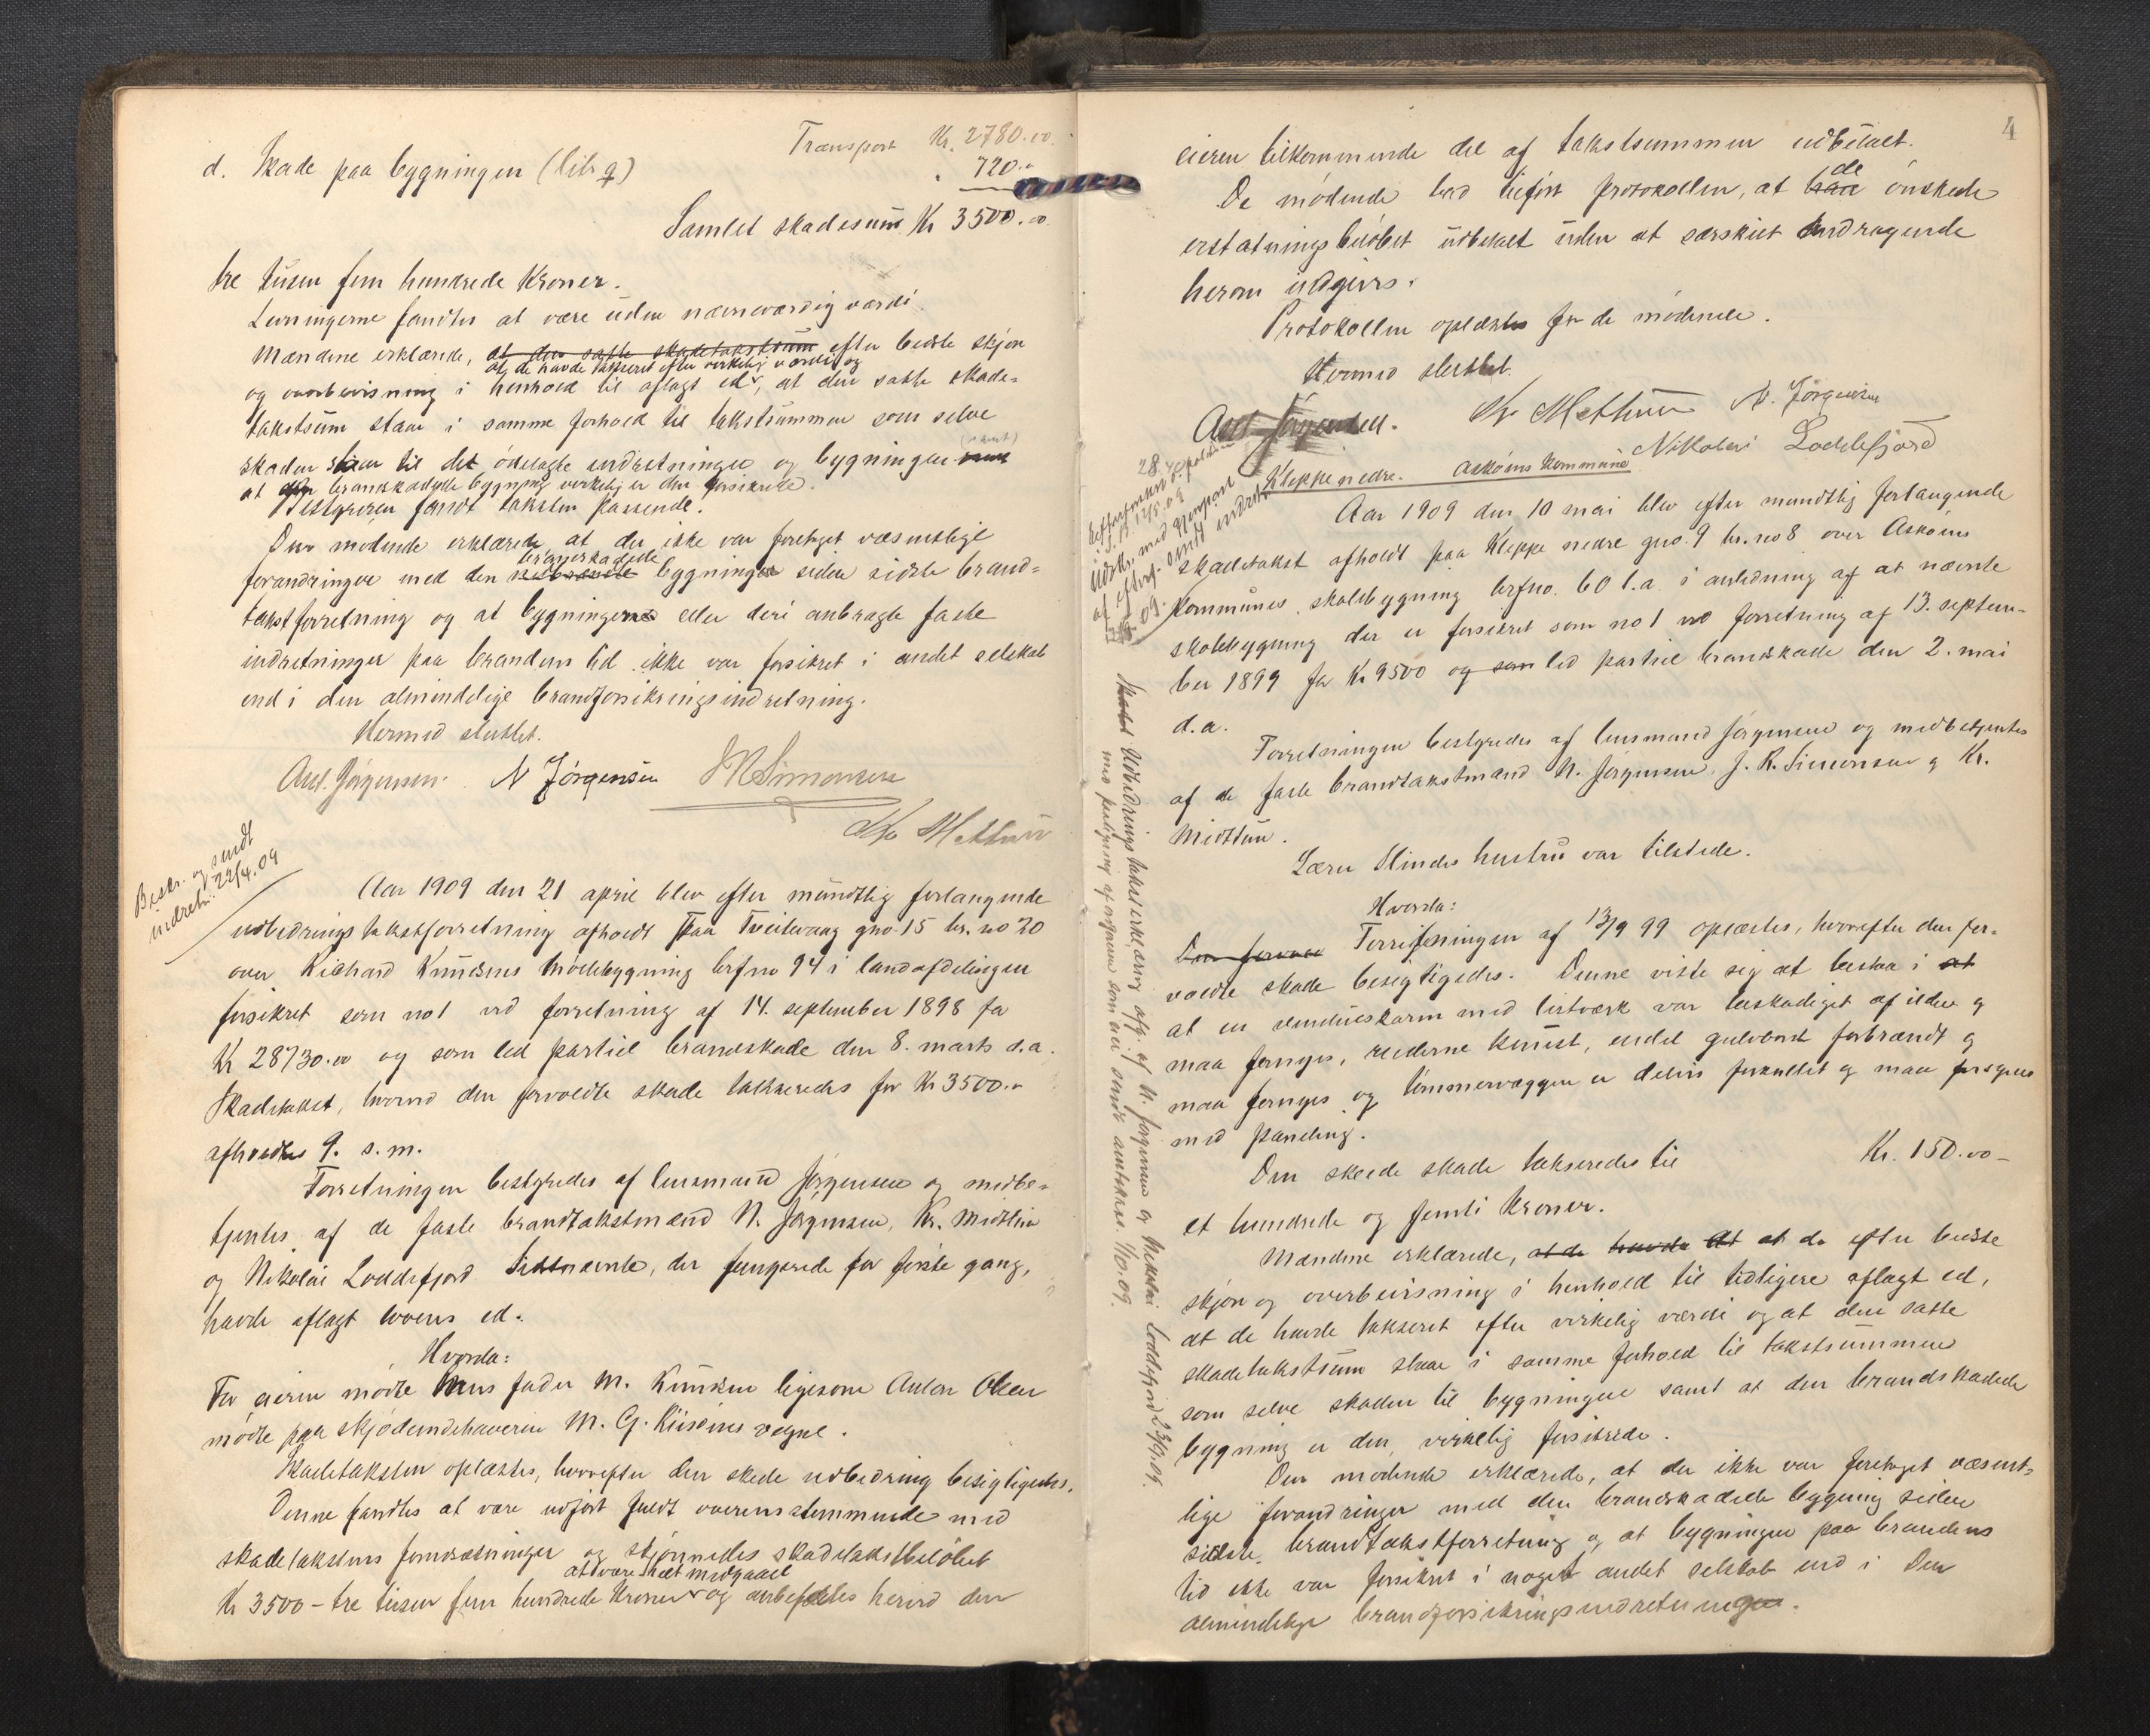 Transport Kr. 2780.00
d. Skade paa bygningen (litr q) " 720.-
Samlet skadesum Kr 3500.00
tre tusen fem hundrede Kroner.
Levningerne fandtes at være uden nævneværdig værdi.
Mændene erklærede, at den satte skadetakstsum efter bedste skjøn
at de havde takseret efter virkelig værdi og
og overbevisning i henhold til aflagt ed, at den satte skade-
takstsum staar i samme forhold til takstsummen som selve
skaden staar til det ødelagte indretninger og bygningen samt
(samt)
at den brandskadede bygning virkelig er den forsikrede.
Bestyreren fandt taksten passende.
Den mødende erklærede, at der ikke var foretaget væsentlige
brandskadede
forandringer med den bygninger siden sidste brand-
takstforretning og at bygningerne eller deri anbragte faste
indretninger paa brandens tid ikke var forsikret i andet selskab
end i den almindelige brandforsikringsindretning.
Hermed sluttet.
Ant. Jørgensen. N Jørgensen J R Simonsen
Kr Midttun
Beskr. og sendt
indretn. 22/4.09
Aar 1909 den 21 april blev efter mundtlig forlangende
udbedringstakstforretning afholdt paa Tveitevaag gno. 15 br. no 20
over Richard Knudsens Mødebygning brfno 94 i landafdelingen
forsikret som no 1 ved forretning af 14. september 1898 for
Kr 28730.00 og som led partiel brandskade den 8. marts d.a.
Skadetakst, hvorved den forvoldte skade takseredes for Kr 3500.-
afholdtes 9. s.m.
Forretningen bestyredes af lensmand Jørgensen og medbe-
tjentes af de faste brandtakstmænd N. Jørgensen, Kr. Midttun
og Nikolai Loddefjord. Sidstnævnte, der fungerede for første gang,
havde aflagt lovens ed.
Hvorda:
For eieren mødte hans fader M. Knudsen ligesom Anton Olsen
mødte paa skjødeindehaveren M. G. vegne.
Skadetaksten oplæstes, hvorefter den skede udbedring besigtigedes.
Denne fandtes at være udført fuldt overensstemmende med
skadetakstens forudsætninger og skjønnedes skadetakstbeløbet
at være medgaaet
Kr 3500 - tre tusen fem hundrede Kroner og anbefaltes herved den
4
eieren tilkommende del af takstsummen udbetalt.
de
De mødende bad tilført protokollen, at han ønskede
erstatningsbeløbet udbetalt uden at særskilt andragende
herom indgives.
Protokollen oplæstes for de mødende.
Hermed sluttet.
Ant. Jørgensen. Kr Midttun N. Jørgensen
Nikolai Loddefjord
Kleppe nedre. Askøens Kommune
Udskr. med gjenpart
af efterf. sendt indretn.
Aar 1909 den 10 mai blev efter mundtlig forlangende
skadetakst afholdt paa Kleppe nedre gno. 9 br. no 8 over Askøens
Kommunes skolebygning brfno. 60 l.a. i anledning af at nævnte
skolebygning der er forsikret som no 1 ved forretning af 13. septem-
ber 1899 for Kr 9500 og som led partiel brandskade den 2. mai
d.a.
Forretningen bestyredes af lensmand Jørgensen og medbetjentes
af de faste brandtakstmænd N. Jørgensen, J. R. Simonsen og Kr.
Midttun.
Lærer Slindes hustru var tilstede.
Hvorda:
Den Forretningen af 13/9 99 oplæstes, hvorefter den for-
voldte skade besigtigedes. Denne viste sig at bestaa i at
at en vindueskarm med listværk var beskadiget af ilden og
maa fornyes, ruderne knust, endel gulvbord forbrændt og
maa fornyes og tømmervæggen er delvis forkullet og maa forsynes
med paneling.
Den skeede skade takseredes til Kr. 150.00 -
et hundrede og femti Kroner.
Mændene erklærede, at de havde at at de efter bedste
skjøn og overbevisning i henhold til tidligere aflagt ed,
at de havde takseret efter virkelig værdi og at den satte
skadetakstsum staar i samme forhold til takstsummen
som selve skaden til bygningen samt at den brandskadede
bygning er den virkelig forsikrede.
Den mødende erklærede, at der ikke var foretaget væsent-
lige forandringer med den brandskadede bygning siden
sidste brandtakstforretning og at bygningen paa brandens
tid ikke var forsikret i noget andet selskab end i Den
almindelige brandforsikringsindretningen.
Skades Udbedringstaksterklæring afg. af N. Jørgensen og Nikolai Loddefjord 23/9.09.
med paategning af som er sendt 1/10.09.